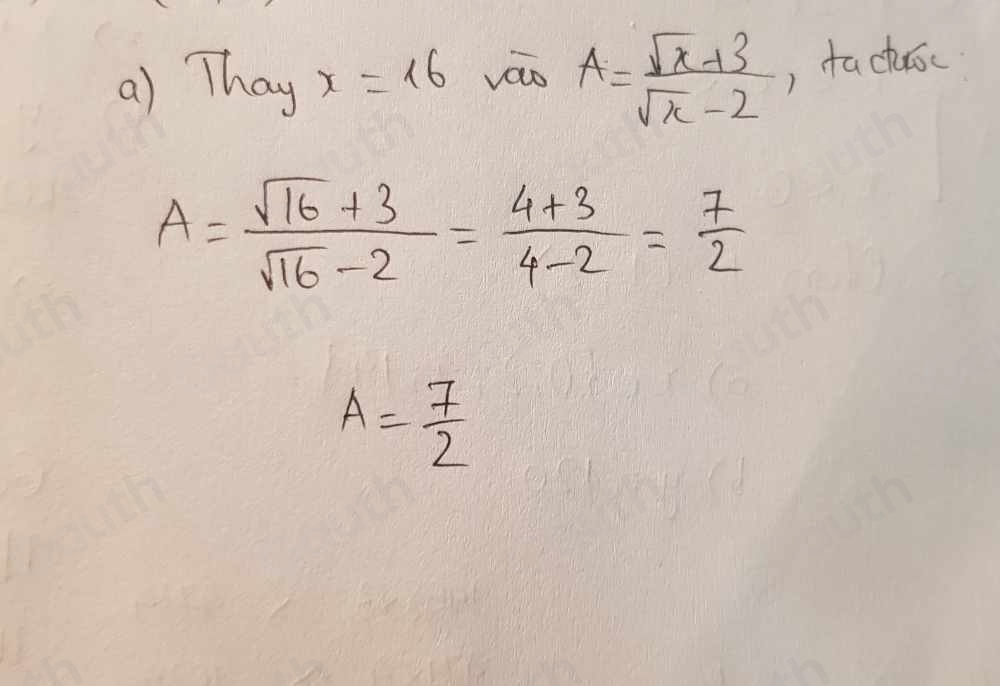 a) Thay x = 16 vào A = (√x + 3)/(√x - 2), ta được:
A = (√16 + 3)/(√16 - 2) = (4 + 3)/(4 - 2) = 7/2
A = 7/2